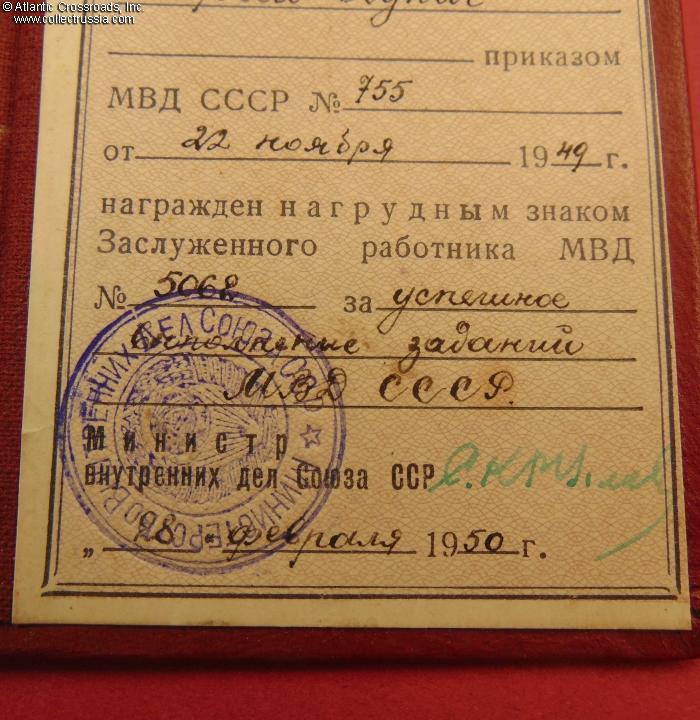 © Atlantic Crossroads, Inc.
www.collectrussia.com
приказом
МВД СССР № 755
от 22 ноября 1949 г.
награжден нагрудным знаком
Заслуженного работника МВД
№ 5068 за успешное
выполнение заданий
МВД СССР.
Министр
внутренних дел Союза ССР С. Круглов
„18" февраля 1950 г.
МИНИСТЕРСТВО ВНУТРЕННИХ ДЕЛ СОЮЗА ССР